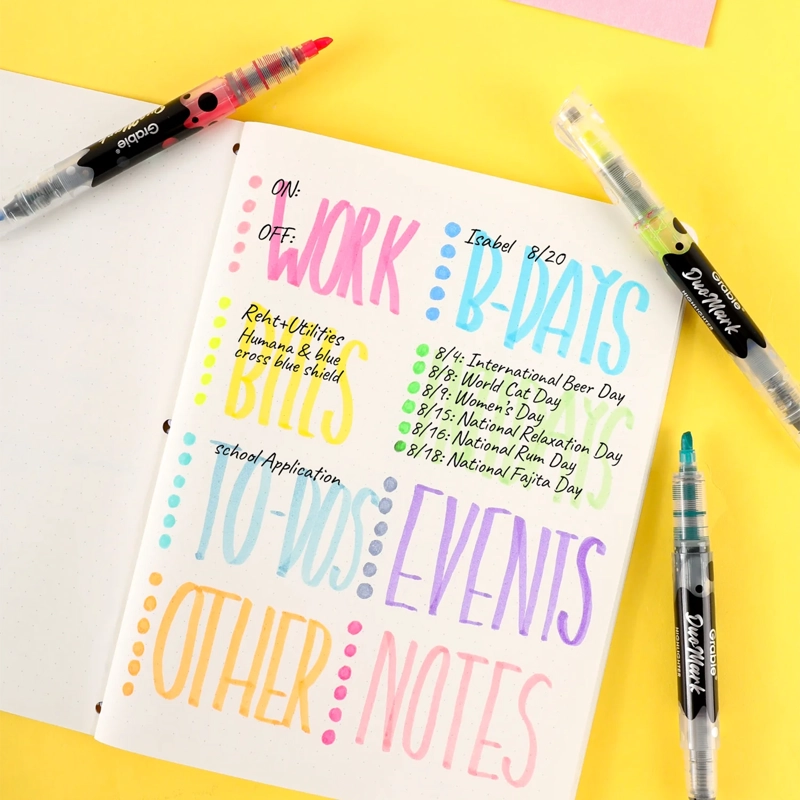 Grable
DuoMark
ON:
OFF:
WORK
Isabel 8/20
B-DAYS
Reht+Utilities
Humana & blue
cross blue shield
BILLS
8/4: International Beer Day
8/8: World Cat Day
8/9: Women's Day
8/15: National Relaxation Day
8/16: National Rum Day
8/18: National Fajita Day
school Application
TO-DOS
EVENTS
OTHER
NOTES
Grable
DuoMark
HIGHLIGHTER
Grable
DuoMark
HIGHLIGHTER